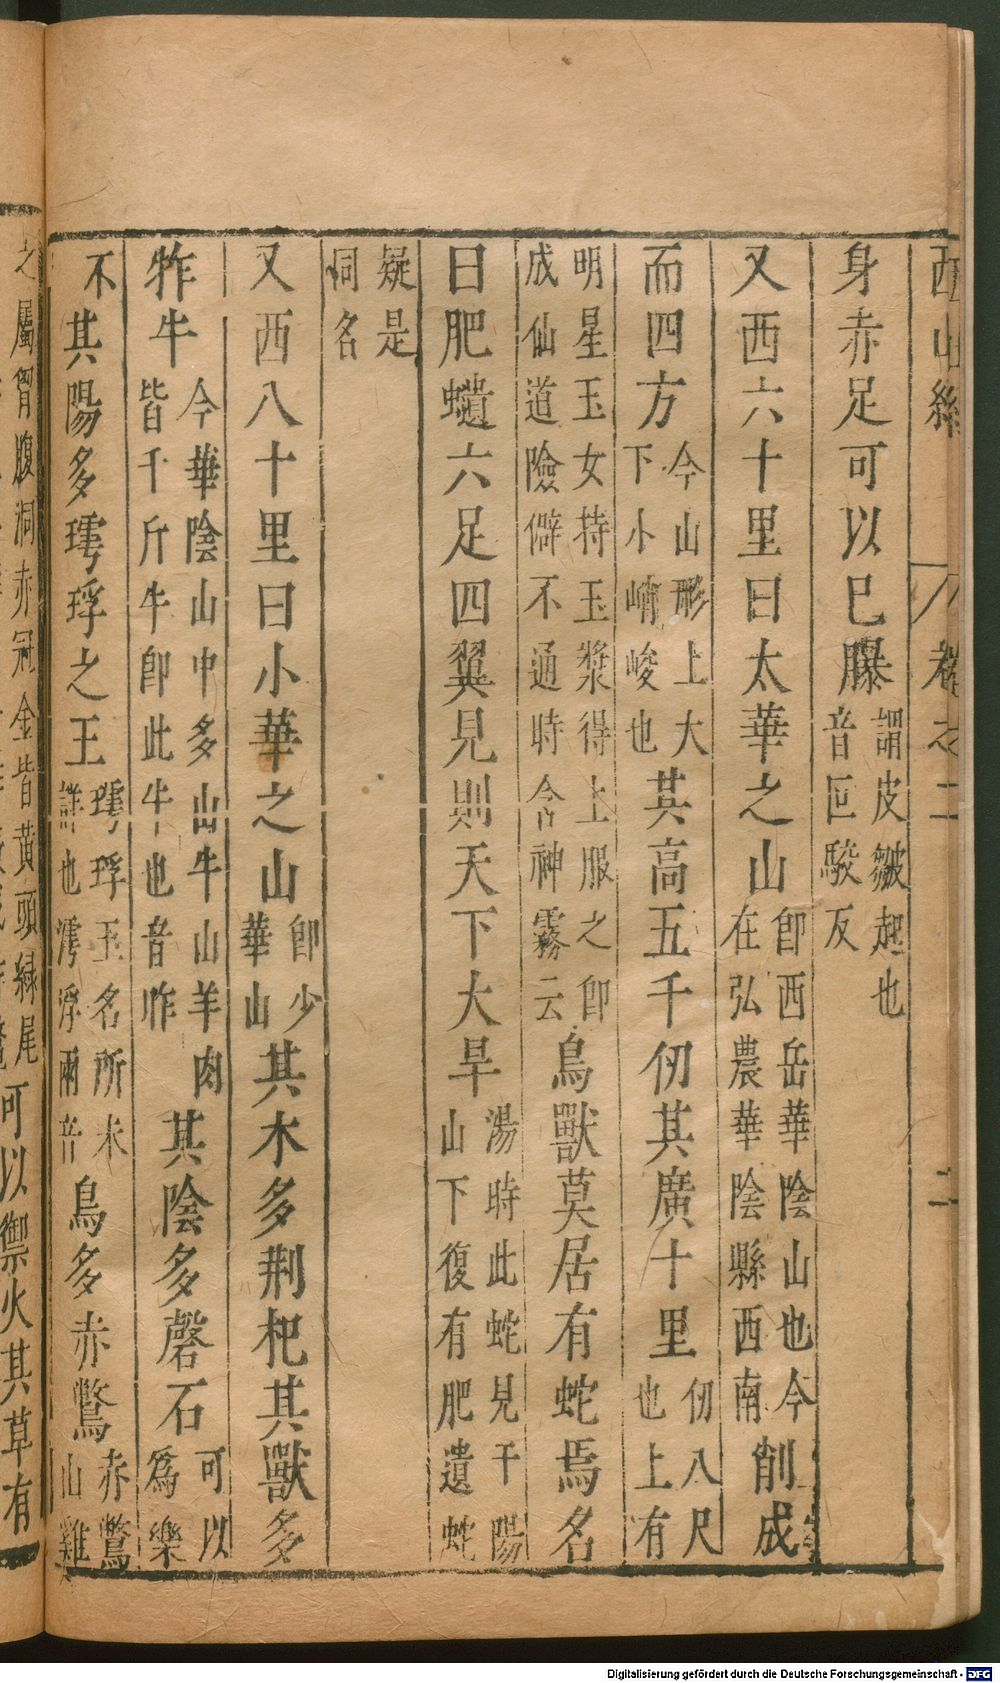 西山經　卷之二　二
身赤足可以已䑋謂皮皺起也音叵駿反
又西六十里曰太華之山卽西岳華陰山也今在弘農華陰縣西南削成
而四方今山形上大下小峭峻也其高五千仞其廣十里仞八尺也上有
明星玉女持玉漿得上服之卽成仙道險僻不通時含神霧云鳥獸莫居有蛇焉名
曰肥䗪六足四翼見則天下大旱湯時此蛇見于陽山下復有肥遺蛇
疑是同名
又西八十里曰小華之山卽少華山其木多荆杞其獸多
㸲牛今華陰山中多山牛山羊肉皆千斤牛卽此牛也音昨其陰多磬石可以爲樂
不其陽多㻬琈之王㻬琈玉名所未詳也㴑浮兩音鳥多赤鷩赤鷩山雞
之屬胷腹洞赤冠金皆黄頭緑尾可以禦火其草有
Digitalisierung gefördert durch die Deutsche Forschungsgemeinschaft - DFG